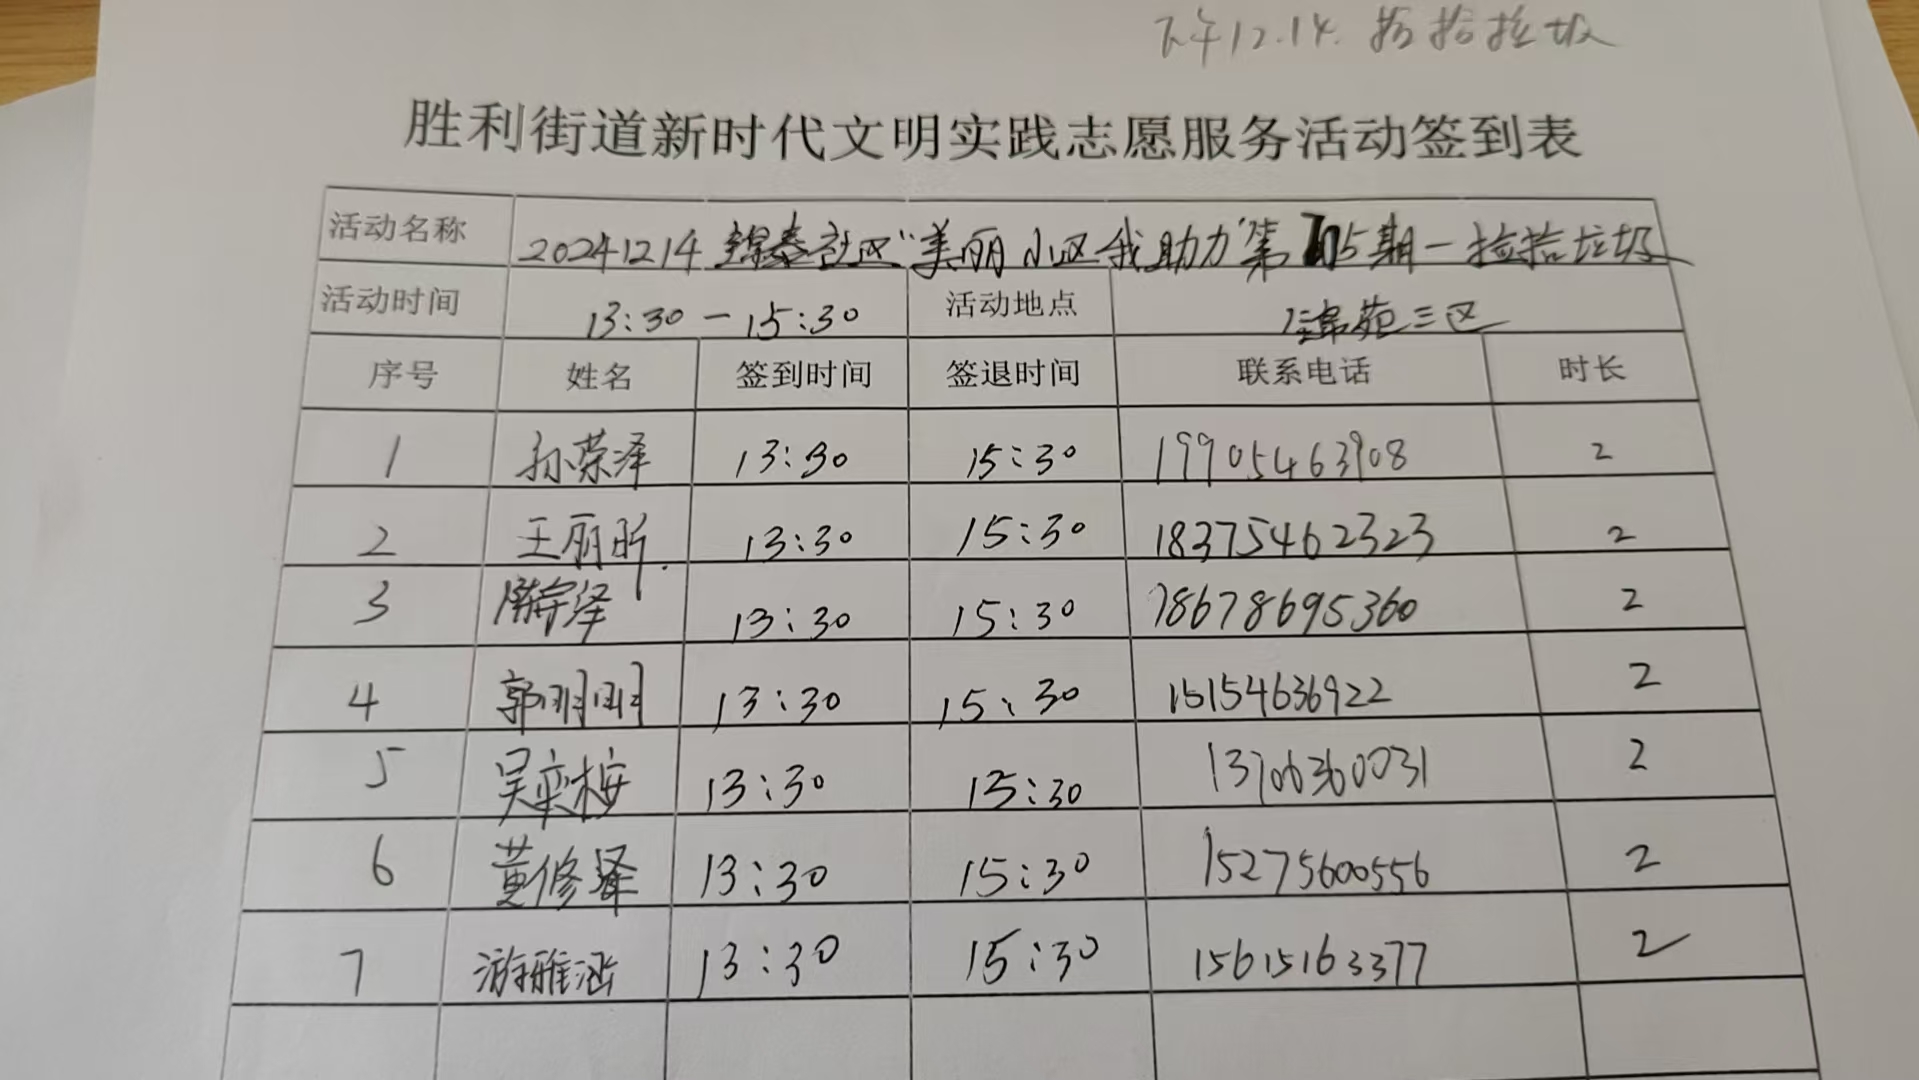 下午12.14. 捡拾垃圾
胜利街道新时代文明实践志愿服务活动签到表
活动名称 20241214 锦泰社区“美丽小区我助力”第105期—捡拾垃圾
活动时间 13:30-15:30 活动地点 锦苑三区
序号 姓名 签到时间 签退时间 联系电话 时长
1 孙荣泽 13:30 15:30 19905463908 2
2 王丽昕 13:30 15:30 18375462323 2
3 宇泽 13:30 15:30 18678695360 2
4 郭明明 13:30 15:30 15154636922 2
5 吴栾桉 13:30 15:30 13706360031 2
6 黄修泽 13:30 15:30 15275600556 2
7 游雅涵 13:30 15:30 15615163377 2